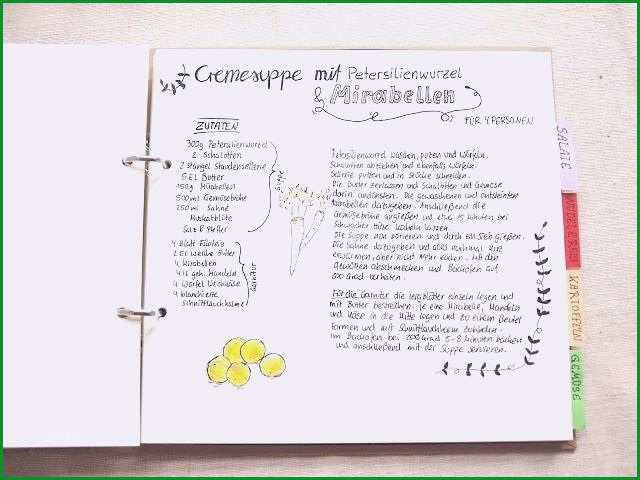 Cremesuppe mit Petersilienwurzel
& Mirabellen
FÜR 4 PERSONEN
ZUTATEN
300g Petersilienwurzel
2 Schalotten
2 Stängel Staudensellerie
5 EL Butter
150g Mirabellen
500ml Gemüsebrühe
250 ml Sahne
Muskatblüte
Salz & Pfeffer
SUPPE
4 Blatt Filoteig
2 El weiche Butter
4 Mirabellen
4 El geh. Mandeln
4 Würfel
4 blanchierte
Schnittlauchhalme
GARNITUR
Petersilienwurzel waschen, putzen und würfeln.
Schalotten abziehen und ebenfalls würfeln.
Sellerie putzen und in Stücke schneiden.
Die Butter zerlassen und Schalotten und Gemüse
darin andünsten. Die gewaschenen und entsteinten
Mirabellen dazugeben. Anschließend die
Gemüsebrühe angießen und etwa 15 Minuten bei
schwacher Hitze köcheln lassen.
Die Suppe nun pürieren und durch ein Sieb gießen.
Die Sahne dazugeben und alles nochmal kurz
erwärmen, aber nicht mehr kochen. Mit den
Gewürzen abschmecken und Backofen auf
200 Grad vorheizen.
Für die Garnitur die Teigblätter einzeln legen und
mit Butter bestreichen. Je eine Mirabelle, Mandeln
und Käse in die Mitte legen und zu einem Beutel
formen und mit Schnittlauchhalm zubinden.
Im Backofen bei 200 Grad 5-8 Minuten backen
und anschließend mit der Suppe servieren.
SALATE
KARTOFFELN
GEMÜSE